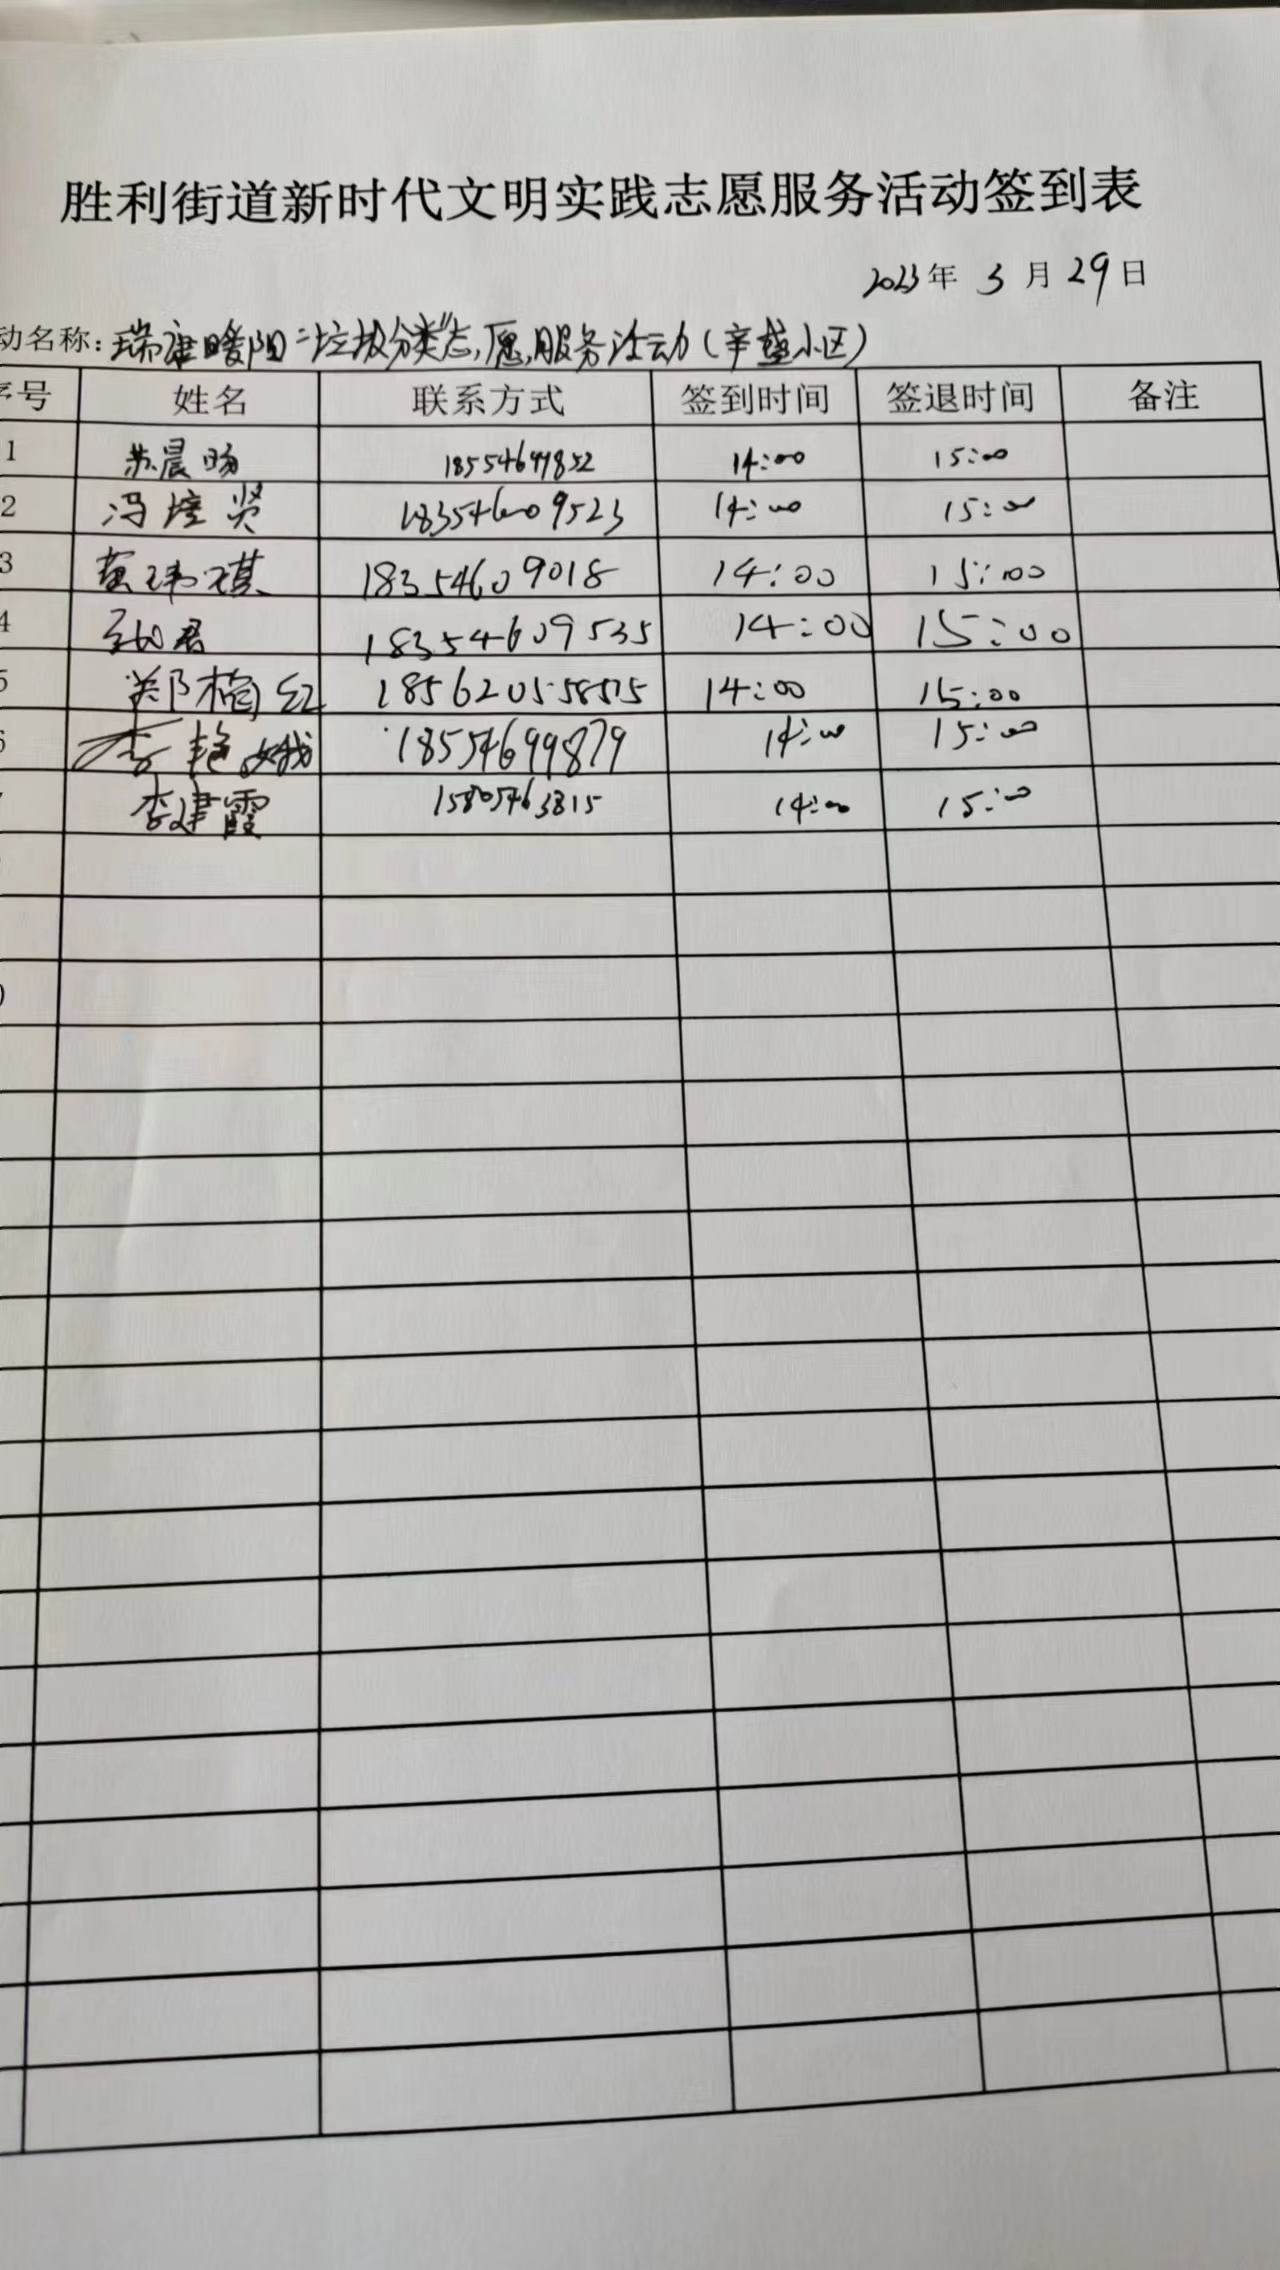 胜利街道新时代文明实践志愿服务活动签到表
2023年 3 月 29 日
动名称：瑞康暖阳“垃圾分类”志愿服务活动(辛盛小区)
序号 姓名 联系方式 签到时间 签退时间 备注
1 苏晨旸 18554699852 14:00 15:00
2 冯培贤 18354609523 14:00 15:00
3 黄玮琪 18354609018 14:00 15:00
4 18354609535 14:00 15:00
5 郑楠红 14:00 15:00
6 李艳娥 18554699879 14:00 15:00
7 李建霞 15805463815 14:00 15:00